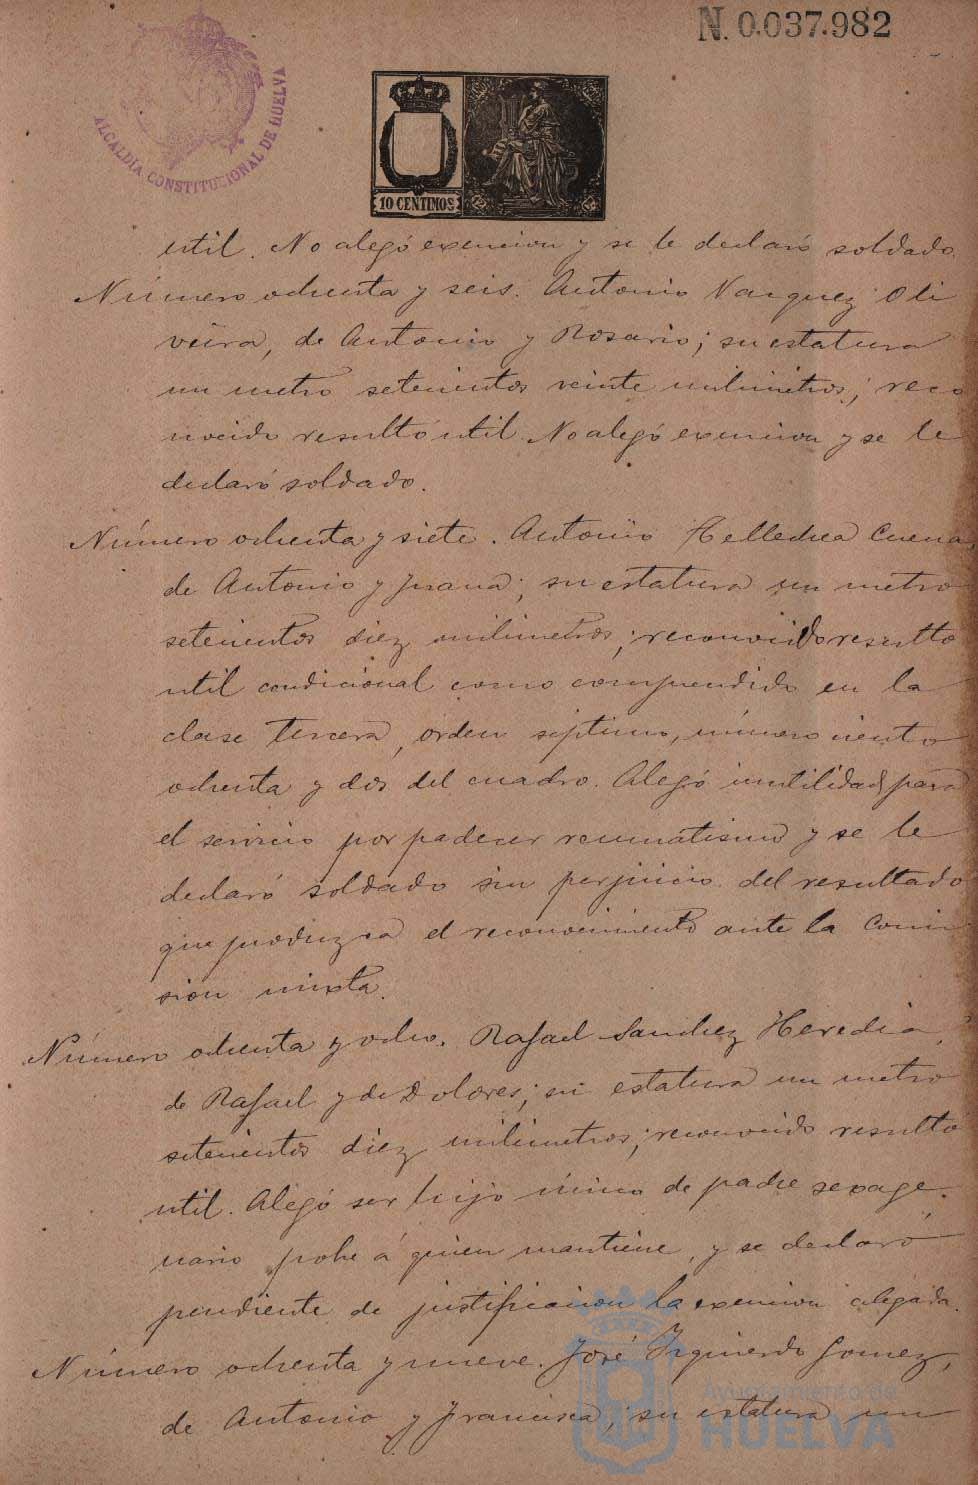 N. 0.037.982
ALCALDÍA CONSTITUCIONAL DE HUELVA
10 CENTIMOS
util. No alegó exencion y se le declaró soldado.
Número ochenta y seis. Antonio Vazquez Oli
veira, de Antonio y Rosario; su estatura
un metro setecientos veinte milimetros; reco
nocido resultó util. No alegó exencion y se le
declaró soldado.
Número ochenta y siete. Antonio Tellechea Cuenca
de Antonio y Juana; su estatura un metro
setecientos diez milimetros; reconocido resultó
util condicional como comprendido en la
clase tercera, orden septimo, número ciento
ochenta y dos del cuadro. Alegó inutilidad para
el servicio por padecer reumatismo y se le
declaró soldado sin perjuicio del resultado
que produzca el reconocimiento ante la Comi
sion mixta.
Número ochenta y ocho. Rafael Sanchez Heredia,
de Rafael y de Dolores; su estatura un metro
setecientos diez milimetros; reconocido resultó
util. Alegó ser hijo único de padre sexage
nario pobre á quien mantiene, y se declaró
pendiente de justificacion la exencion alegada.
Número ochenta y nueve. José Izquierdo Gomez,
de Antonio y Francisca; su estatura un
Ayuntamiento de
HUELVA